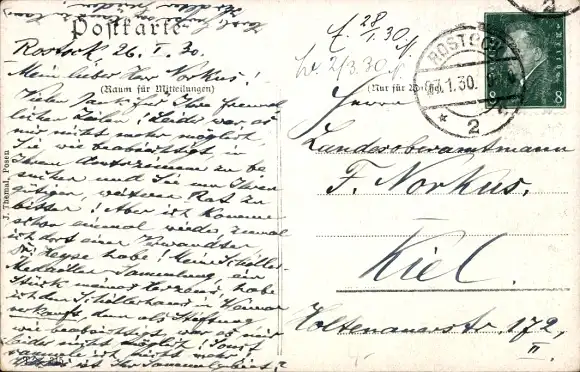 Postkarte
Rostock 26. I. 30.
Mein lieber Herr Norkus!
(Raum für Mitteilungen)
Vielen Dank für Ihre freund-
lichen Zeilen! Leider war es
mir nicht mehr möglich,
Sie, wie beabsichtigt in
Ihrem zu be
suchen und Sie um Ihren
gütigen, weiteren Rat zu
bitten! Aber ich komme
schon einmal wieder, zumal
ich dort einen Verwandten
Dr. Heyse habe! Meine Schiller-
Medaillen Sammlung, ein
Stück meines Herzens, habe
ich dem Schillerhaus in Weimar
verkauft, denn als Stiftung
wie beabsichtigt, war es mir
leider nicht möglich! Sonst
sammle ich nicht mehr!
ist Ihr Sammelgebiet?
J. Themal, Posen
f. 28/1.30.
2/3.30.
(Nur für
ROSTOCK
1.30.
* 2
8 8
Herrn
Landesoberamtmann
F. Norkus.
Kiel.
Holtenauerstr. 172,
II.